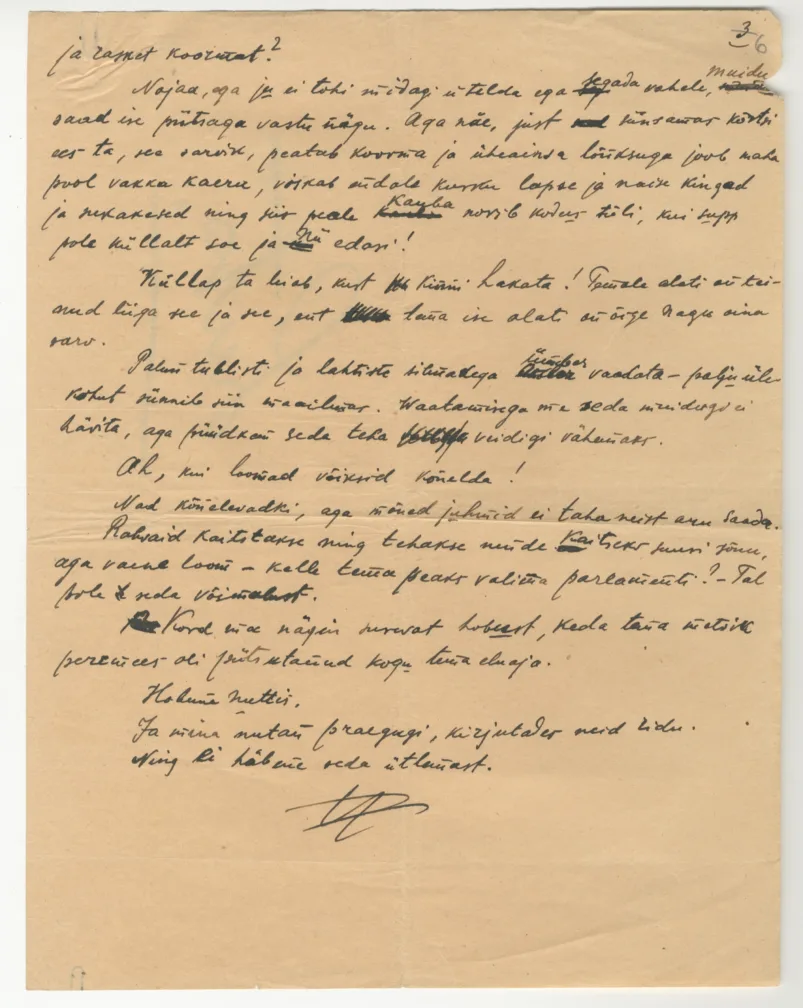 3
6
ja rasket koormat?
Nojaa, ega ju ei tohi midagi ütelda ega segada vahele, muidu
saad ise piitsaga vastu nägu. Aga näe, just siinsamas kõrtsi
ees ta, see sarvik, peatab koorma ja üheainsa lonksuga joob maha
pool vakka kaeru, viskab lapse ja naise kingad
ja sukakesed ning siis peale kauba norib kodus tüli, kui supp
pole küllalt soe ja nii edasi!
Küllap ta leiab, kust kinni hakata! Temale alati on tei-
nud liiga see ja see, ent tema ise alati on õige nagu oina
sarv.
Palun tublisti ja lahtiste silmadega ümber vaadata – palju üle-
kohut sünnib siin maailmas. Waatamisega me seda muidugi ei
hävita, aga püüdkem seda teha veidigi vähemaks.
Ah, kui loomad võiksid kõnelda!
Nad kõnelevadki, aga mõned juhmid ei taha neist aru saada.
Rahvaid kaitstakse ning tehakse nende kaitseks suuri sõnu,
aga vaene loom – kelle tema peaks valima parlamenti? – Tal
pole seda võimalust.
Kord ma nägin surevat hobust, keda tema metsik
peremees oli piitsutanud kogu tema eluaja.
Hobune nuttis.
Ja mina nutan praegugi, kirjutades neid ridu.
Ning ei häbene seda ütlemast.